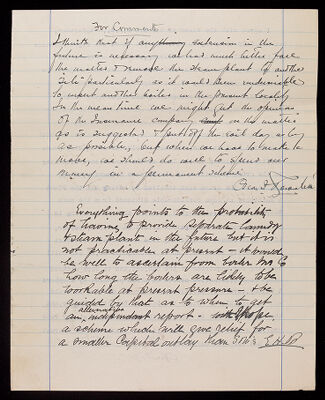 For Comments
I think that if any extension in the
future is necessary we had much better face
the matter & remove the steam plant to another
site particularly as it would be undesirable
to input another boiler in the present locality
In the mean time we might get the opinion
of the Insurance company on the matter
as is suggested & put off the evil day as long
as possible, but when we have to make a
move, we should do well to spend our
money in a permanent scheme
Everything points to the probability
of having to provide separate laundry
& steam plants in the future but it is
not practicable at present – it would
be well to ascertain from boiler Ins Co
how long the boilers are likely to be
workable at present pressure – & be
guided by that as to when to get
alternative
an independent report –
a scheme which will give relief for
a smaller Capital outlay than